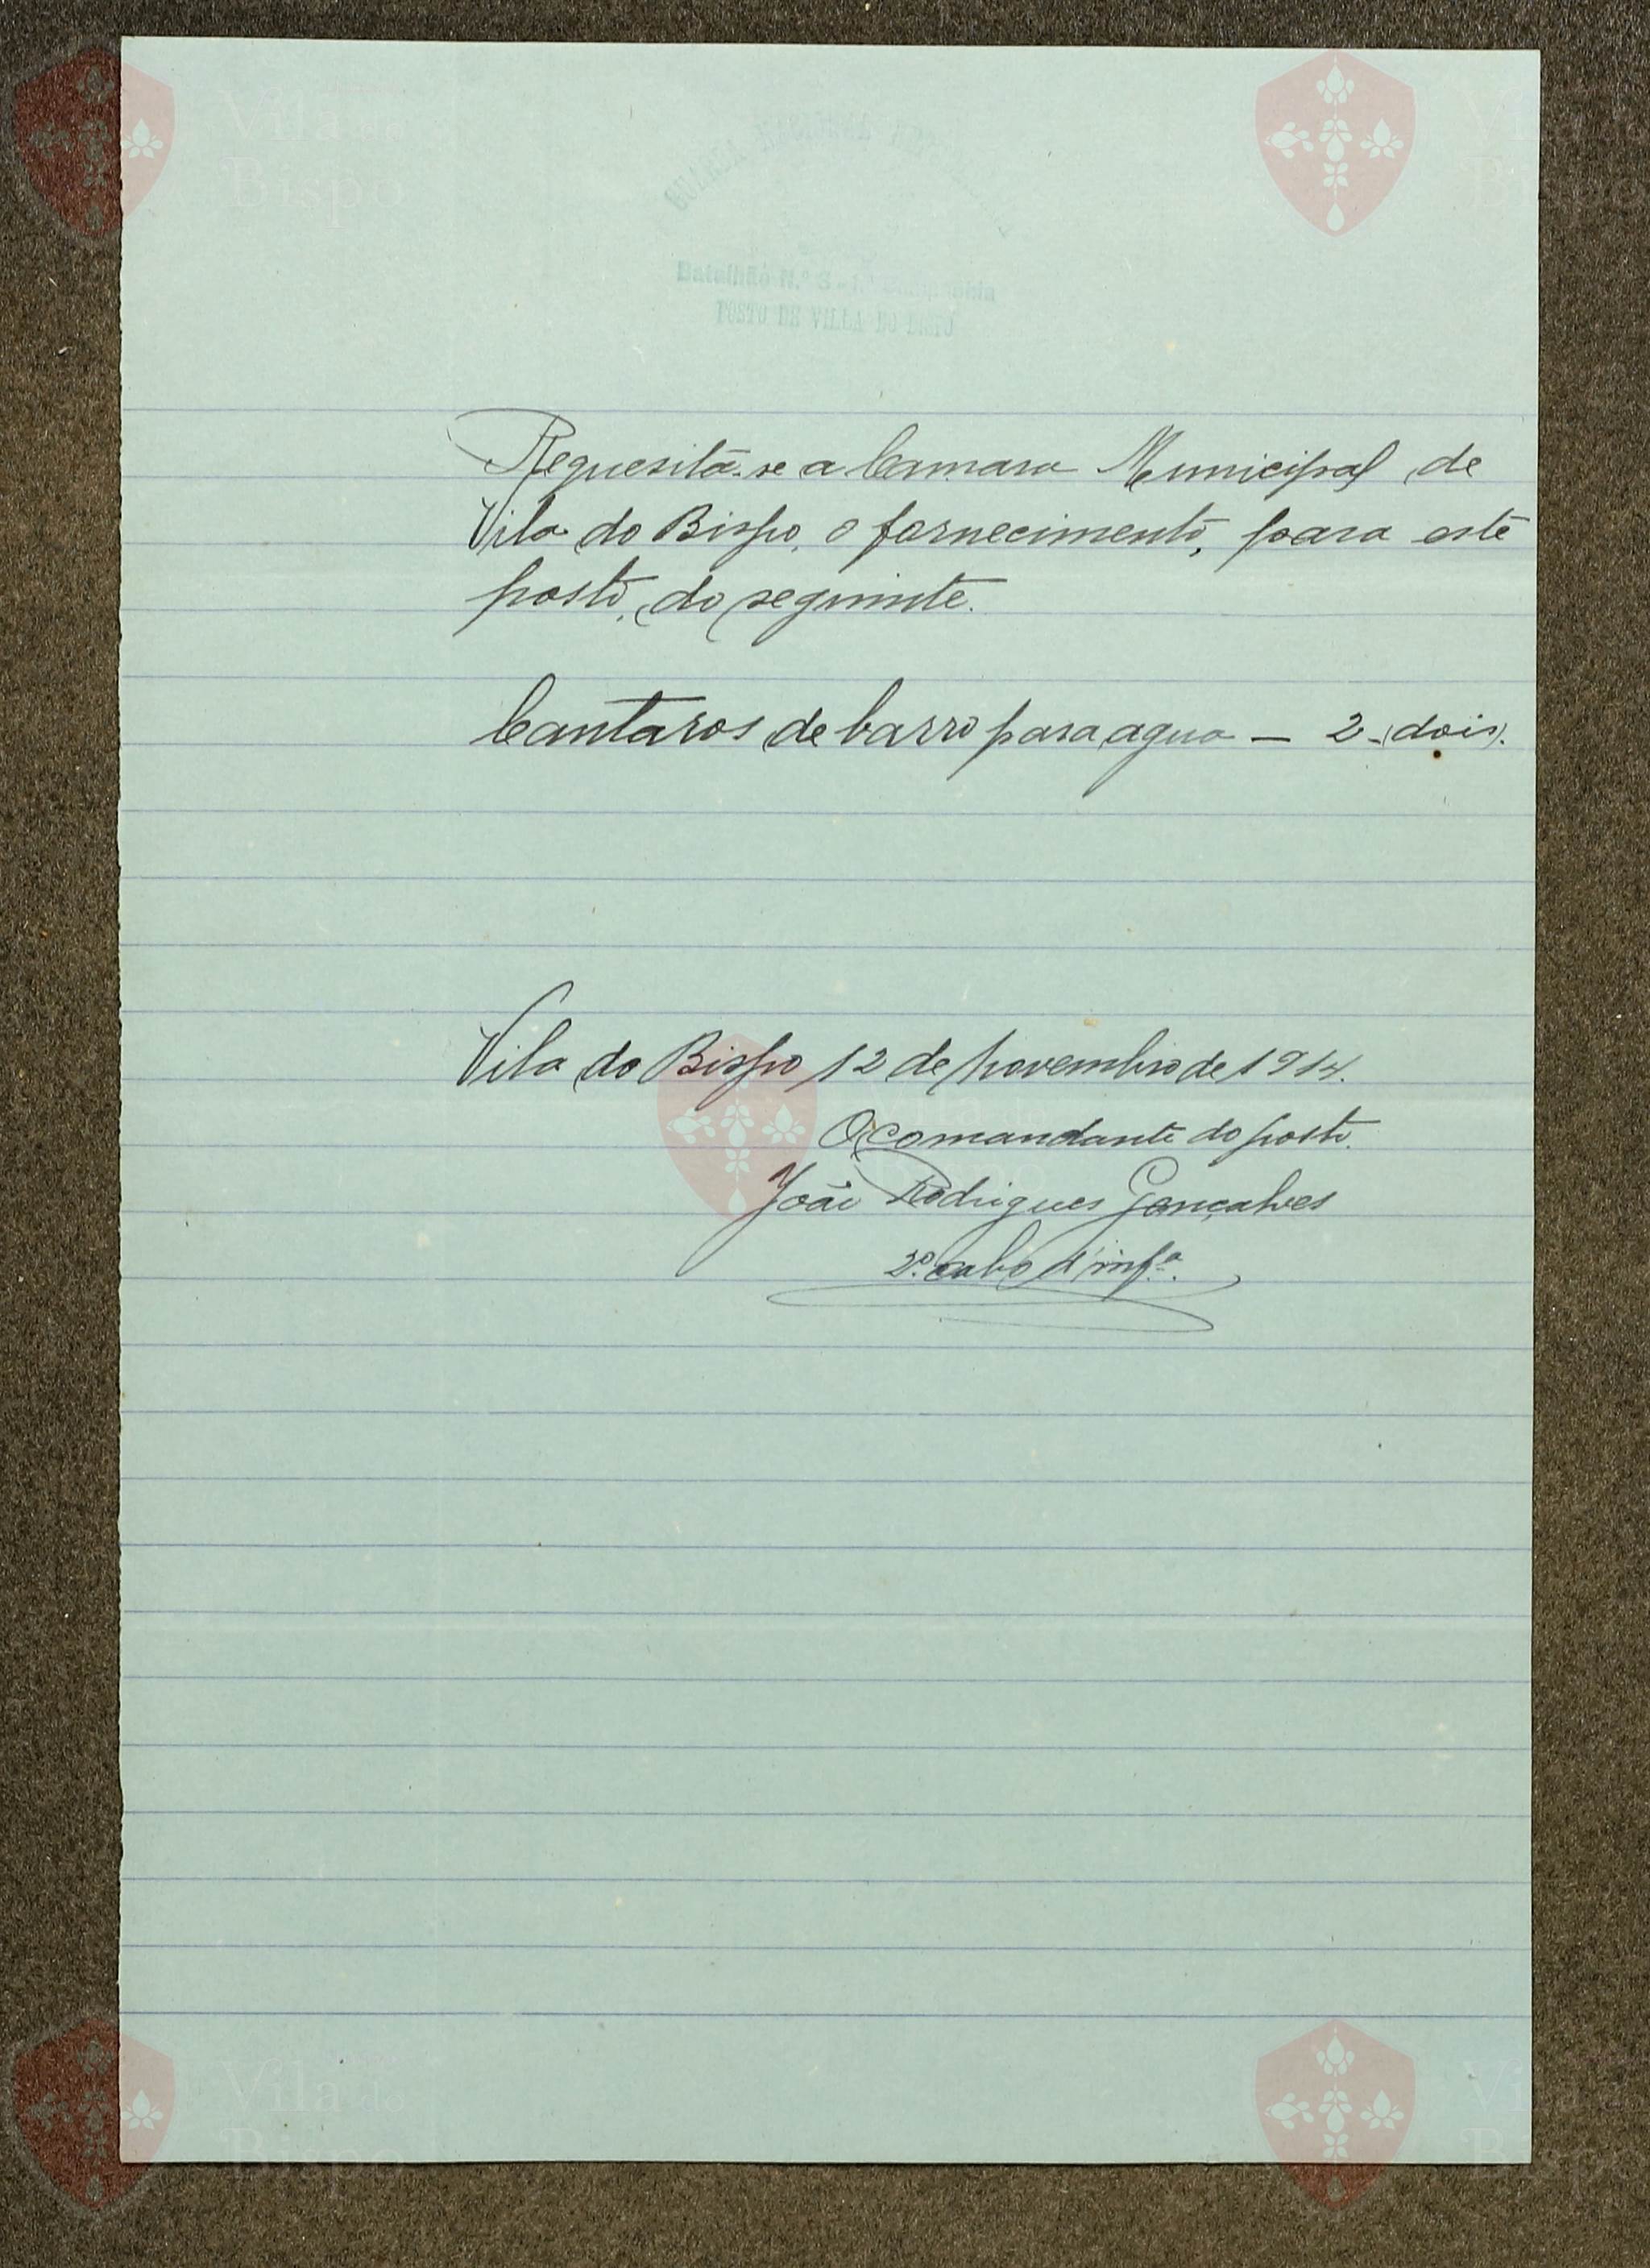 GUARDA NACIONAL
Batalhão N.º 3 - 1.ª Companhia
POSTO DE VILLA DO BISPO
Requesita-se a Camara Municipal de
Vila do Bispo, o fornecimento, para este
posto, do seguinte.
Cantaros de barro para agua — 2-(dois).
Vila do Bispo 12 de novembro de 1914.
O comandante do posto.
João Rodrigues Gonçalves
2º. cabo d'infª.
Vila do
Bispo
Vila do
Bispo